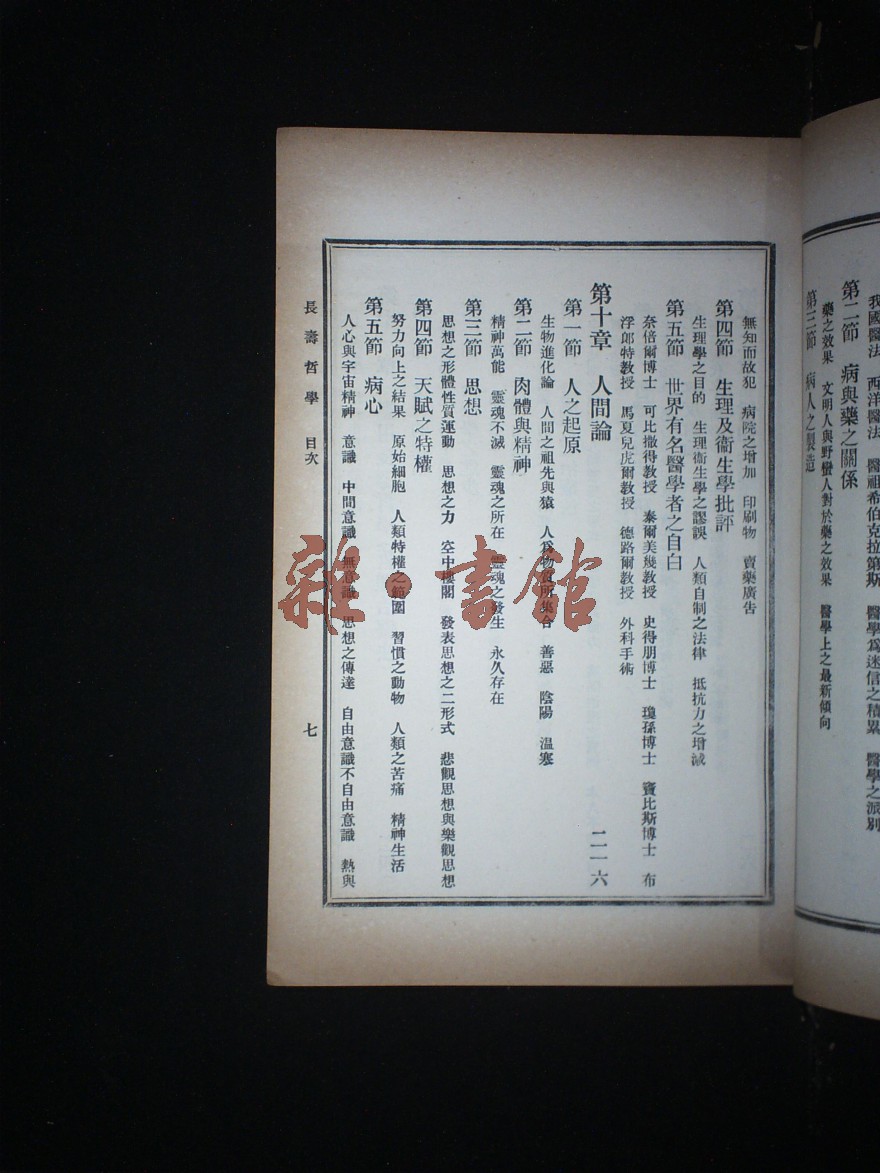 我國醫法　西洋醫法　醫祖希伯克拉第斯　醫學爲迷信之積累　醫學之派別
第二節　病與藥之關係
藥之效果　文明人與野蠻人對於藥之效果　醫學上之最新傾向
第三節　病人之製造
無知而故犯　病院之增加　印刷物　賣藥廣告
第四節　生理及衞生學批評
生理學之目的　生理衞生學之謬誤　人類自制之法律　抵抗力之增減
第五節　世界有名醫學者之自白
奈倍爾博士　可比撒得教授　泰爾美幾教授　史得朋博士　瓊孫博士　竇比斯博士　布
浮郎特教授　馬夏兒虎爾教授　德路爾教授　外科手術
第十章　人間論　二一六
第一節　人之起原
生物進化論　人間之祖先與猿　人爲物質所集合　善惡　陰陽　温寒
第二節　肉體與精神
精神萬能　靈魂不滅　靈魂之所在　靈魂之發生　永久存在
第三節　思想
思想之形體性質運動　思想之力　空中樓閣　發表思想之二形式　悲觀思想與樂觀思想
第四節　天賦之特權
努力向上之結果　原始細胞　人類特權之範圍　習慣之動物　人類之苦痛　精神生活
第五節　病心
人心與宇宙精神　意識　中間意識　無意識　思想之傳達　自由意識不自由意識　熱與
長壽哲學　目次　七
雜·書館